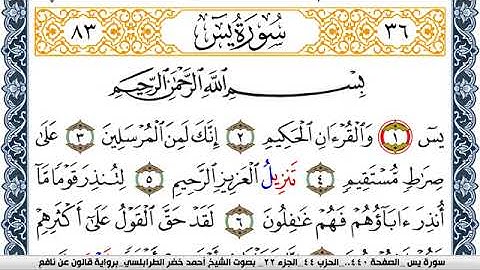 ٨٣ سُورَةُ يسٓ ٣٦
بِسْمِ اللَّهِ الرَّحْمَٰنِ الرَّحِيمِ
يسٓ ١ وَالْقُرْءَانِ الْحَكِيمِ ٢ إِنَّكَ لَمِنَ الْمُرْسَلِينَ ٣ عَلَىٰ
صِرَٰطٖ مُّسْتَقِيمٖ ٤ تَنزِيلُ الْعَزِيزِ الرَّحِيمِ ٥ لِتُنذِرَ قَوْمٗا مَّا
أُنذِرَ ءَابَآؤُهُمْ فَهُمْ غَٰفِلُونَ ٦ لَقَدْ حَقَّ الْقَوْلُ عَلَىٰٓ أَكْثَرِهِمْ
سورة يس _الصفحة ٤٤٠_..الحزب ٤٤_الجزء ٢٢_ بصوت الشيخ أحمد خضر الطرابلسي_برواية قالون عن نافع